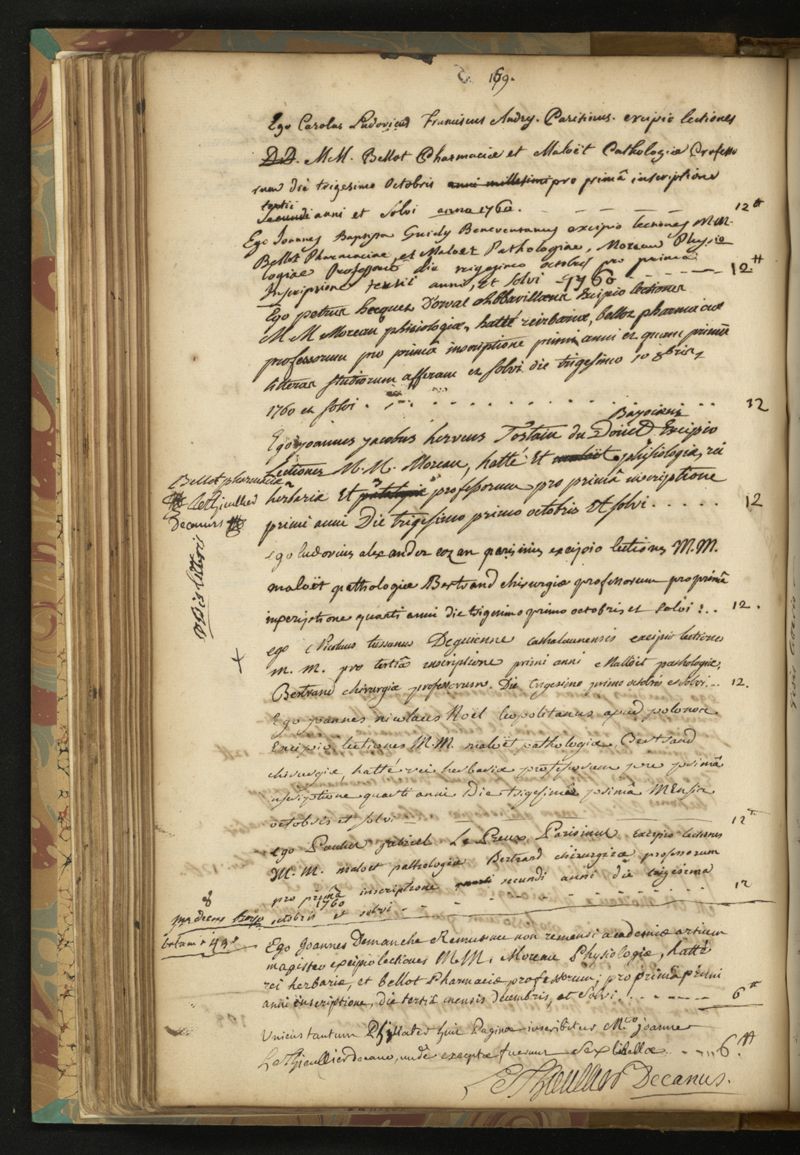 169.
Ego Carolus Ludovicus Franciscus Andry. Parisinus. excipio lectiones
D.D. M.M. Bellot Pharmaciæ et Maloët Pathologiæ Professo
rum die trigesimo Octobris anni millesimi pro primâ inscriptione
tertii
secundi anni et solvi anno 1760. 12 ₶
Ego Joannes Baptista Guidy Beneventanus excipio lectiones M.M.
Bellot Pharmaciae, et Maloet Pathologiae, Moreau Physio
logiae Professorum die trigesimo octobris pro prima
Inscriptione tertii anni, et solvi 1760 12 ₶
Ego petrus hecquet Dorval abbavillæus Excipio lectiones
M M Moreau phisiologiæ, hatté rei erbariæ, bellot pharmaciæ
professorum pro primâ inscriptione primi anni et quam primum
litteras studiorum afferam et solvi die trigesimo 8bris
1760 et solvi 12
Bayocensis
Ego joannes jacobus herveus Tostain du Excipio
Lectiones M.M. Moreau, hatté Et maloët phisiologiæ, rei
herbariæ Et professorum pro primâ inscriptione
primi anni Die trigesimo primo octobris Et solvi 12
Bellot pharmaciæ
LeThieullier
Decanus
Ego ludovicus alexander cozan parisinus excipio lectiones M.M.
maloët pathologiæ Bertrand chirurgiæ professorum pro primâ
inscriptione quarti anni die trigesimo primo octobris et solvi 12.
ego Nicolaus tussanus Dequienne cathalaunensis excipio lectiones
m. m. pro tertiâ inscriptione primi anni Malloët pathologiæ,
Bertrand chirurgiæ professorum. Die trigesimo primo octobris et solvi 12.
Ego joannes nicolaus Noël leopolitanus apud polonos
Excipio lectiones M.M. maloët pathologiæ Bertrand
chirurgiæ, hatté rei herbariæ professorum pro primâ
inscriptione quarti anni Die trigesima primâ Mensis
octobris et solvi 12 ₶
ego Paulus gabriel Le Preux Parisinus excipio lectiones
M. M. maloet pathologiæ Bertrand chirurgiæ professorum
pro primâ inscriptione secundi anni die trigesima
1760
octobris et solvi 12
8
Ego Joannes Demanche Remus non remensi academiæ artium
magister excipio lectiones M.M. Moreau Physiologiæ, hatté
rei herbariæ, et bellot Pharmaciæ professorum; pro primâ primi
anni inscriptione, die tertiâ mensis decembris, et solvi 6 ₶
Unicus tantum Philiater huic Paginæ inscribitur M.co joanne
LeThieullier decano, unde exceptæ fuerunt sex libellæ 6 ₶
LeThieullier Decanus.